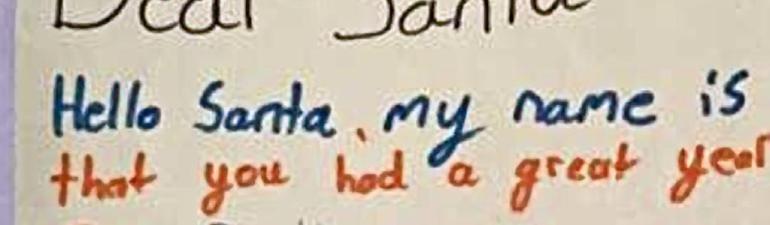 Dear Santa
Hello Santa, my name is
that you had a great year